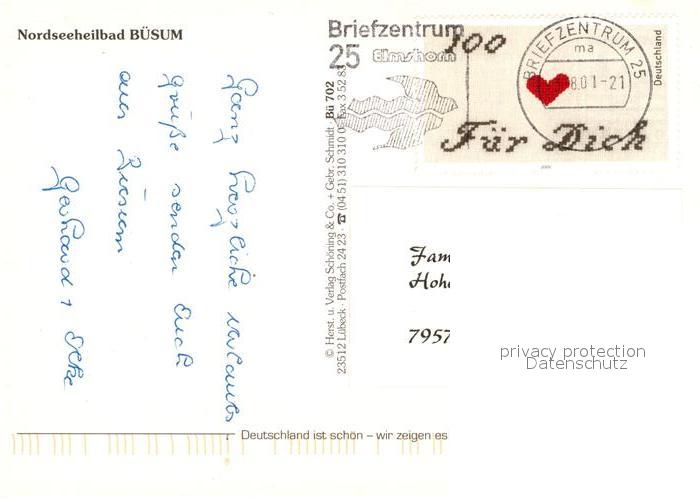 Nordseeheilbad BÜSUM
Ganz herzliche Urlaubs
grüße senden Euch
aus Büsum
Gerhard + Elke
© Herst. u. Verlag Schöning & Co. + Gebr. Schmidt · Bü 702
23512 Lübeck · Postfach 24 23 · ☎ (04 51) 310 310 0 Fax 3 52 83
Briefzentrum
25 Elmshorn
100
Für Dich
Deutschland
BRIEFZENTRUM 25
ma
8.01-21
Fam
Hohe
7957
privacy protection
Datenschutz
Deutschland ist schön – wir zeigen es